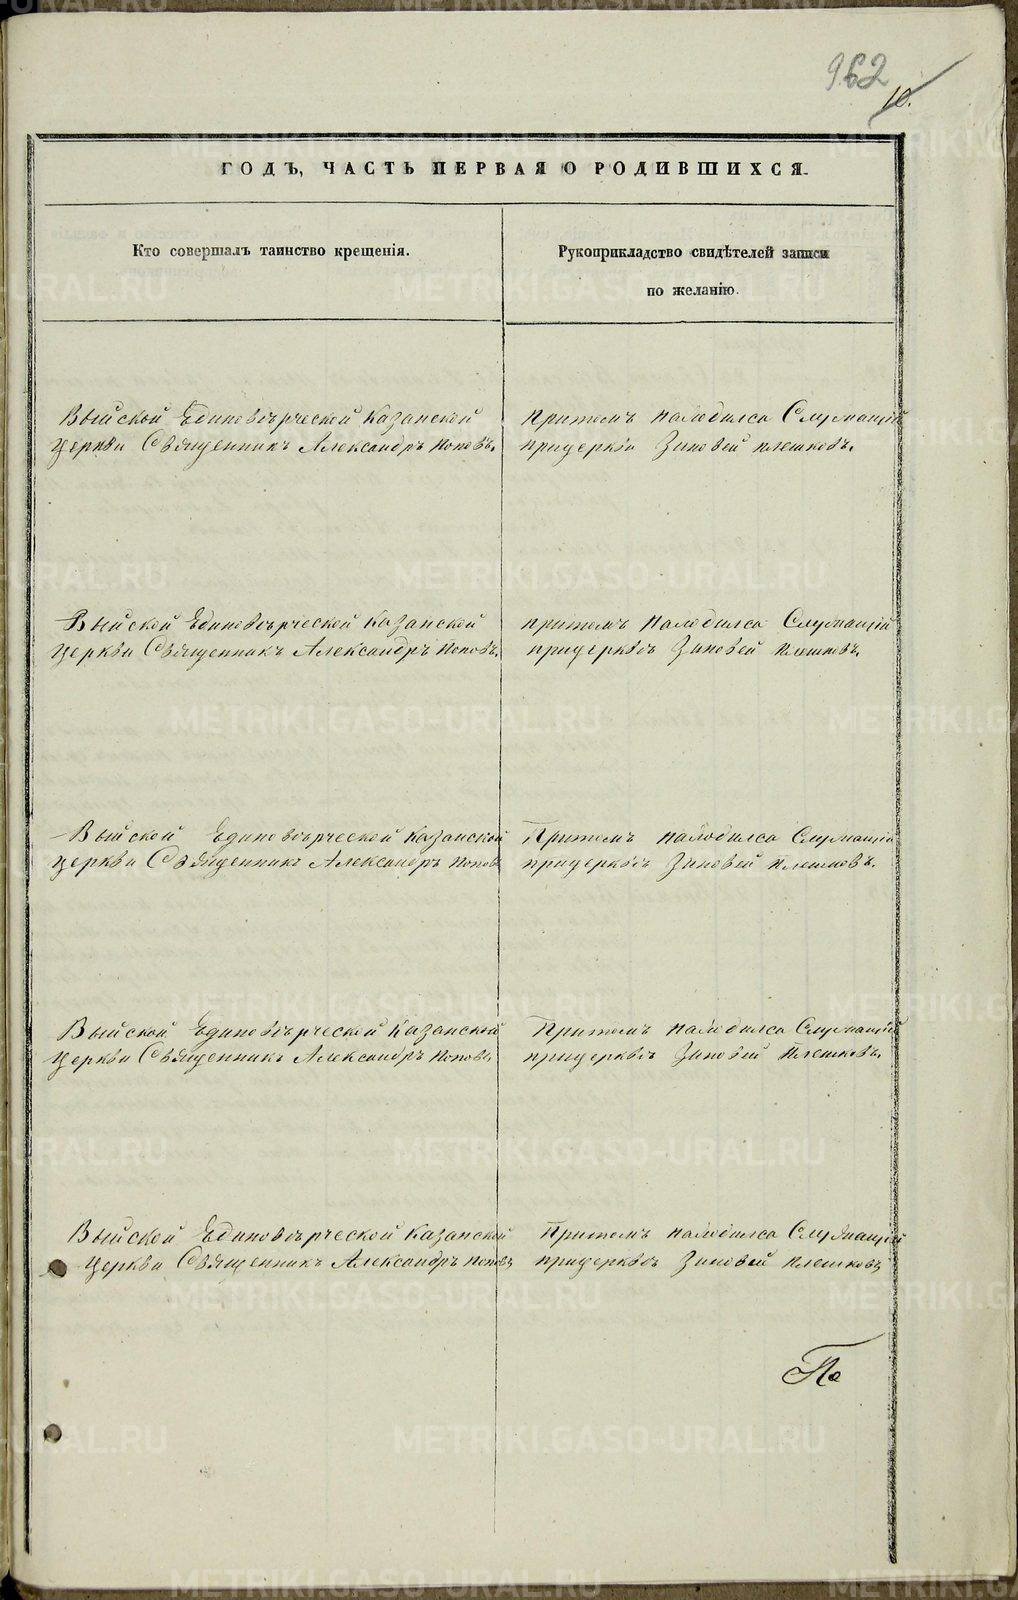 962
10.
ГОДЪ, ЧАСТЬ ПЕРВАЯ О РОДИВШИХСЯ.
Кто совершалъ таинство крещенія.
Рукоприкладство свидѣтелей записи
по желанію.
Выйской Единовѣрческой Казанской
церкви Священникъ Александръ Поповъ.
Притомъ находился Служащій
прицеркви Зиновей Плешковъ.
Выйской Единовѣрческой Казанской
церкви Священникъ Александръ Поповъ.
притомъ находился Служащій
прицерквѣ Зиновей Плешковъ.
Выйской Единовѣрческой Казанской
церкви Священникъ Александръ Поповъ
Притомъ находился Служащій
прицерквѣ Зиновей Плешковъ.
Выйской Единовѣрческой Казанской
церкви Священникъ Александръ Поповъ
Притомъ находился Служащій
прицерквѣ Зиновей Плешковъ.
Выйской Единовѣрческой Казанской
церкви Священникъ Александръ Поповъ
Притомъ находился Служащій
прицерквѣ Зиновей Плешковъ
По
METRIKI.GASO-URAL.RU